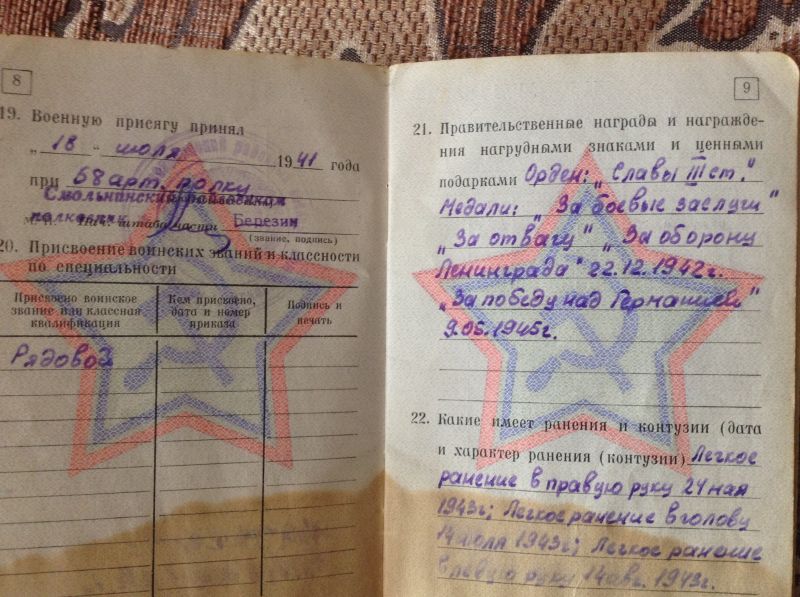 8
19. Военную присягу принял
„ 18 " июля 1941 года
при 58 арт. полку
Смольнинский
полковник
М. П. Нач. штаба части Березин
(звание, подпись)
20. Присвоение воинских званий и классности
по специальности
Присвоено воинское звание или классная квалификация
Кем присвоено, дата и номер приказа
Подпись и печать
Рядовой
9
21. Правительственные награды и награжде-
ния нагрудными знаками и ценными
подарками Орден: „Славы III ст."
Медали: „За боевые заслуги"
„За отвагу" „За оборону
Ленинграда" 22.12.1942г.
„За победу над Германией"
9.05.1945г.
22. Какие имеет ранения и контузии (дата
и характер ранения (контузии) Легкое
ранение в правую руку 24 мая
1943г; Легкое ранение в голову
14 июля 1943г; Легкое ранение
в левую руку 14 авг. 1943г.